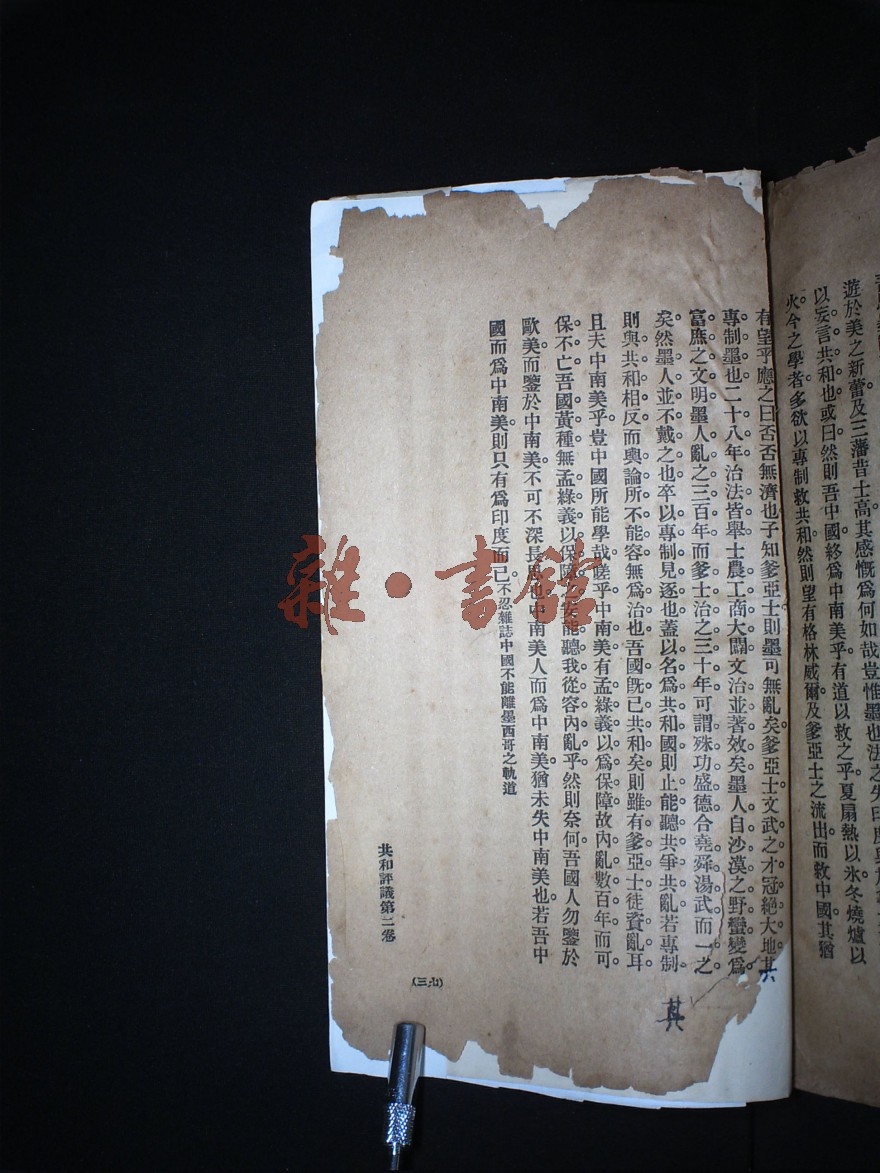 遊於美之新蕾及三藩昔士高其感慨爲何如哉豈惟墨也法之失印度與
以妄言共和也或曰然則吾中國終爲中南美乎有道以救之乎夏扇熱以氷冬燒爐以
火今之學者多欲以專制救共和然則望有格林威爾及爹亞士之流出而救中國其猶
有望乎應之曰否否無濟也子知爹亞士則墨可無亂矣爹亞士文武之才冠絕大地其
專制墨也二十八年治法皆舉士農工商大闢文治並著效矣墨人自沙漠之野蠻變爲
富庶之文明墨人亂之三百年而爹士治之三十年可謂殊功盛德合堯舜湯武而一之
矣然墨人並不戴之也卒以專制見逐也蓋以名爲共和國則止能聽共爭共亂若專制
則與共和相反而輿論所不能容無爲治也吾國旣已共和矣則雖有爹亞士徒資亂耳
且夫中南美乎豈中國所能學哉嗟乎中南美有孟綠義以爲保障故內亂數百年而可
保不亡吾國黃種無孟綠義以保障安能聽我從容內亂乎然則奈何吾國人勿鑒於
歐美而鑒於中南美不可不深長思也中南美人而爲中南美猶未失中南美也若吾中
國而爲中南美則只有爲印度而已不忍雜誌中國不能離墨西哥之軌道
共和評議第二卷
(三七)
其
雜·書館